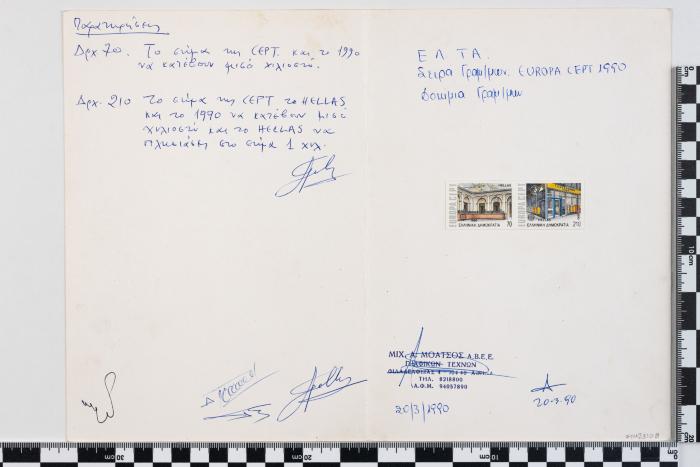 Παρατηρήσεις
Δρχ 70. Το σήμα της CEPT. και το 1990
να κατέβουν μισό χιλιοστό.
Δρχ. 210 Το σήμα της CEPT το HELLAS
και το 1990 να κατέβουν μισό
χιλιοστό και το HELLAS να
πλησιάσει στο σήμα 1 χιλ.
ΕΛΤΑ.
Σειρά Γραμ/μων. EUROPA CEPT 1990
Δοκίμια Γραμ/μων
EUROPA CEPT
HELLAS
ΕΛΛΗΝΙΚΗ ΔΗΜΟΚΡΑΤΙΑ 70
EUROPA CEPT
ΕΛΛΗΝΙΚΗ ΔΗΜΟΚΡΑΤΙΑ 210
ΜΙΧ. Α. ΜΟΑΤΣΟΣ Α.Β.Ε.Ε.
ΓΡΑΦΙΚΩΝ ΤΕΧΝΩΝ
ΦΙΛΑΔΕΛΦΕΙΑΣ 4
ΤΗΛ. 8218800
Α.Φ.Μ. 94057890
20/3/1990
20-3-90
10cm
30
20
10
cm